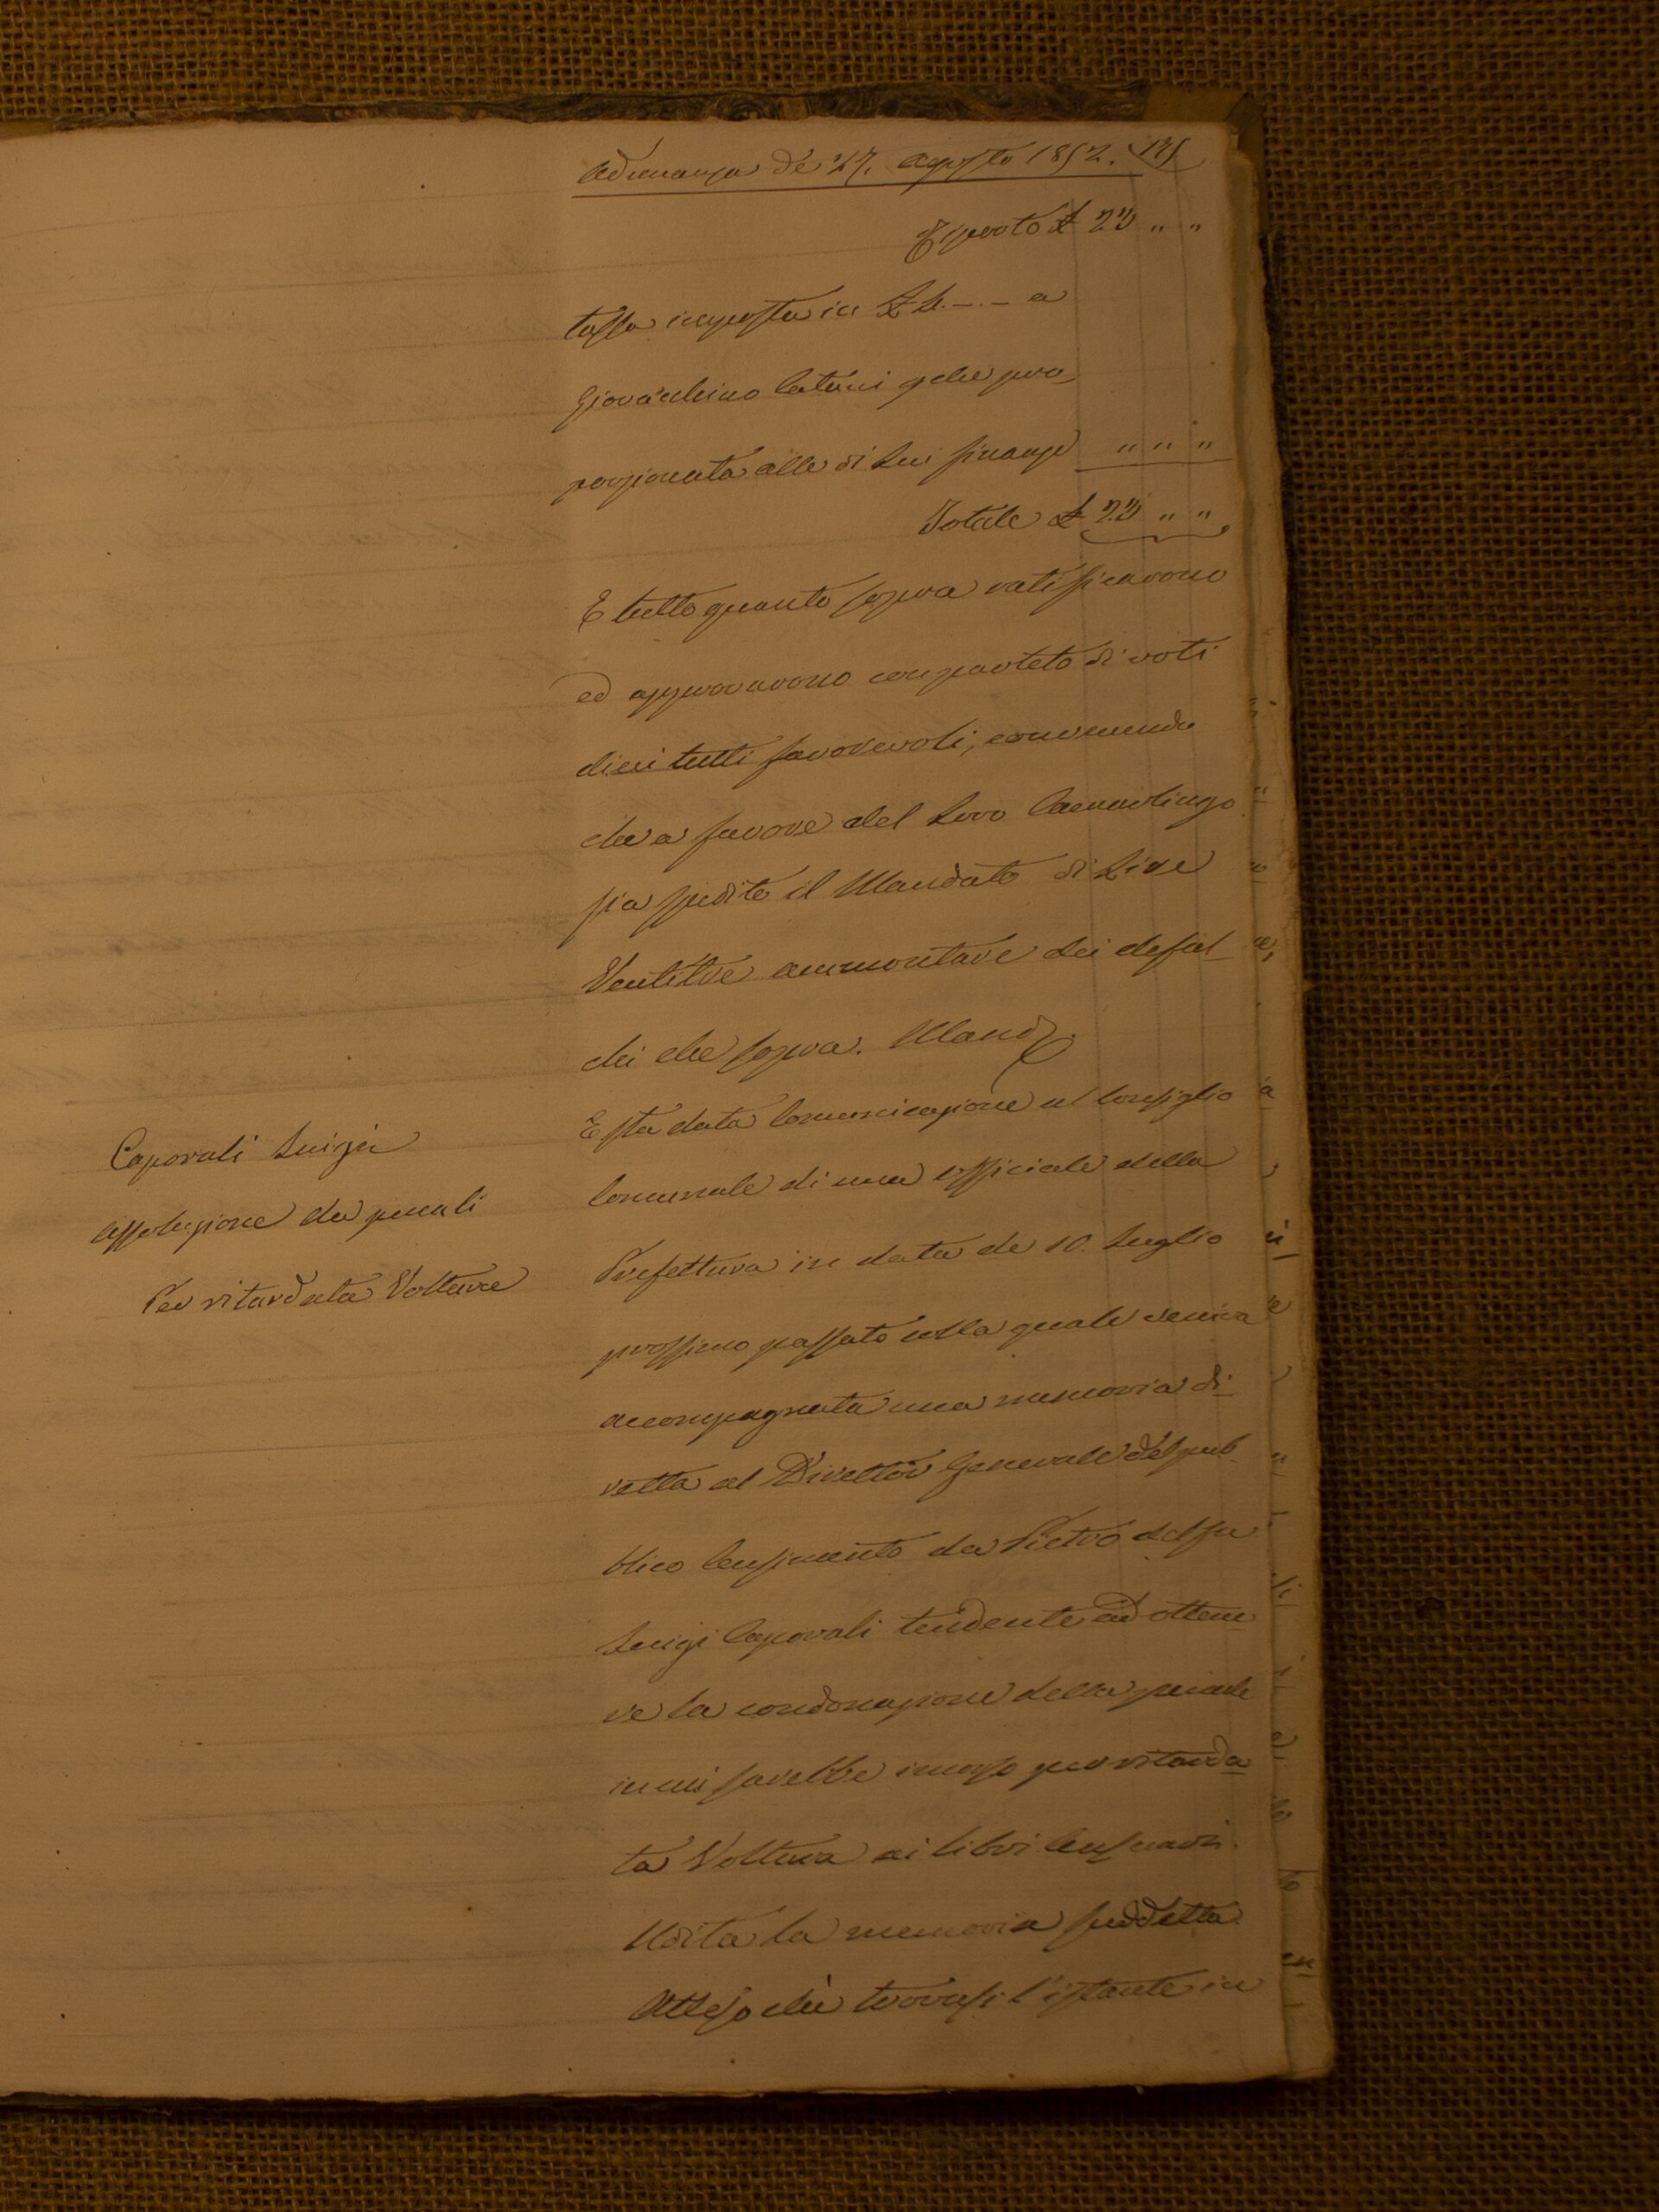 Adunanza de 27. Agosto 1852.
Riporto £ 23 " "
tassa imposta in £ 2.–.– a
Giovacchino Catani che pro_
porzionata alle di Lui finanze " " "
Totale £ 23 " "
E tutto quanto sopra ratificarono
ed approvarono con partito di voti
dieci tutti favorevoli, convenendo
che a favore del Loro Camarlingo
sia spedito il Mandato di Lire
Ventitre ammontare dei defal_
chi che sopra. Mand.
Caporali Luigi
assoluzione da penali
Per ritardata Volture
E sta data Comunicazione al Consiglio
Comunale di una Officiale della
Prefettura in data de 10. Luglio
prossimo passato colla quale veniva
accompagnata una memoria di_
retta al Direttor Generale del pub_
blico Censimento da Pietro del fu
Luigi Caporali tendente ad ottene_
re la condonazione della penale
in cui sarebbe incorso per ritarda_
ta Voltura ai libri Censuari.
Udita la memoria suddetta
Atteso chè trovasi l'istante in